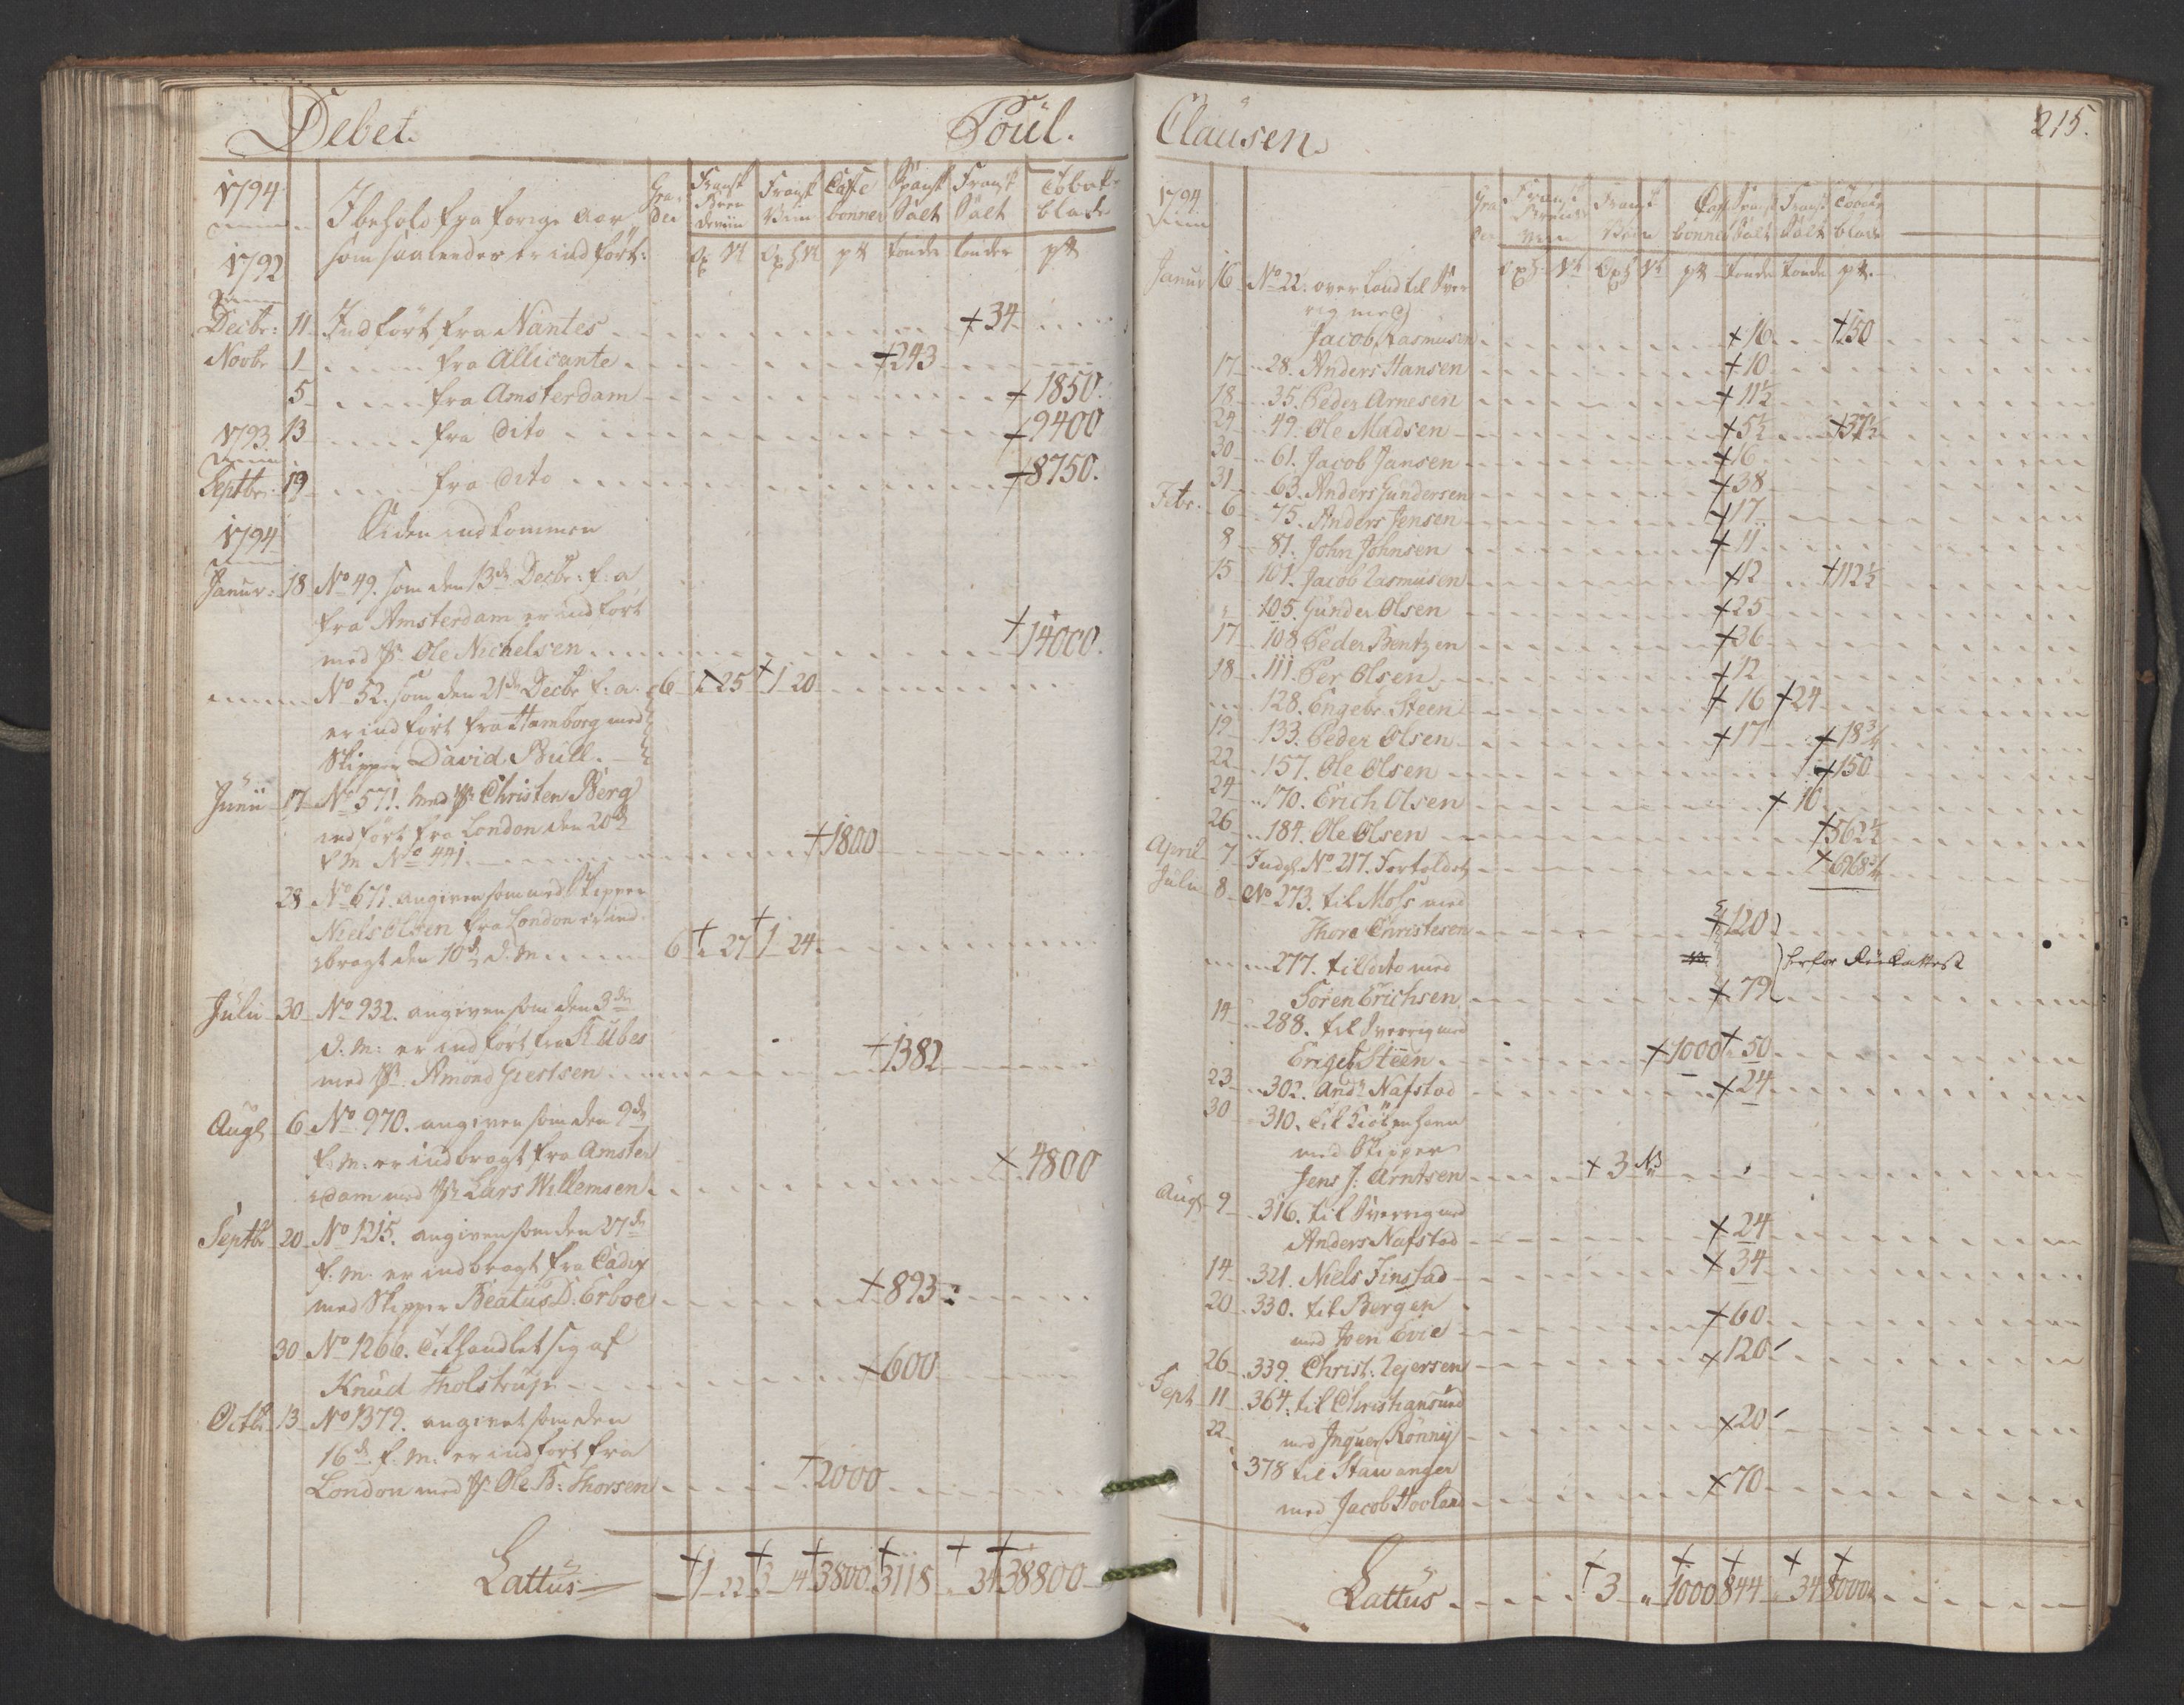 Debet. Poul.
1794
Gra- Fransk Fransk Caffe Spansk Fransk Toback
Ibehold fra forige Aar der Bren- Viin bonner Salt Salt blade
deviin
1792 som saaledes er indført: Ox Vt Ox Vt pt tønder tønder pt
Decbr: 11 Indført fra Nantes 34
Novbr 1 fra Allicante 243
5 fra Amsterdam 1850.
1793 13 fra dito 9400
Septbr: 19 fra dito 8750.
1794 Siden indkommen
Januar: 18 No 49. som den 13de Decbr: f: a
fra Amsterdam er indført
med Sr Ole Nichelsen 14000.
No 52. som den 21de Decbr f: a. 6 25 1 20
er indført fra Hamborg med
Skipper David Bull.
Junii 17 No 571. med Sr Christen Berg
indført fra London den 20de
f. M No 441. 1800
28 No 671. angiven som med Skipper
Niels Olsen fra London er ind-
bragt den 10de d. M 6 27 1 24
Julii 30 No 932. angiven som den 3de
d: M: er indført fra St Ubes
med Sr. Amond Giertsen 1382
Augs 6 No 970. angiven som den 9de
f. M: er indbragt fra Amster-
dam med Sr Lars Willemsen 4800
Septbr 20 No 1215. angiven som den 27de
f. M. er indbragt fra Cadix
med Skipper Beatus D: Erboe 893
30 No 1266. Tilhandlet sig af
Knud Tholstrup 600
Octbr 13 No 1379. angivet som den
16de f. M: er indført fra
London med Sr. Ole B: Thorsen 2000
Lattus 1 22 3 14 3800. 3118 34 38800
Clausen. 215.
1794
Gra Fransk Fransk Caffe Spansk Fransk Toback
der Brende Viin bonner Salt Salt blade
Viin
Januar 16 No 22. over Land til Sver
rig med
Jacob Rasmusen 16 150
17 28. Anders Hansen 10
18 35. Peder Arnesen 11½
24 49. Ole Madsen 5½ 37½
30 61. Jacob Jansen 16
31 63. Anders Gundersen 38
Febr. 6 75. Anders Jensen 17
8 87. John Johnsen 11
15 101. Jacob Rasmusen 12 112½
105. Gunder Olsen 25
17 108 Peder Bentzen 36
18 111. Per Olsen 12
128. Engebr Steen 16 24
19 133. Peder Olsen 17 18¾
22 157. Ole Olsen 150
24 170. Erich Olsen 10
26 184. Ole Olsen 562½
April 7 Indgl No 217. Fortoldet 6968¾
Julii 8 No 273. til Moss med
Thore Christesen 120
277. til dito med
Soren Erichsen 79
14 288. til Sverrig med
Engebr Steen 1000 50
23 302. Andr Nafstad 24
30 310. til Kiöbenhavn
med Skipper
Jens J: Arntsen 3
Augs 9 316. til Sverrig med
Anders Nafstad 24
14 321. Niels Finstad 34
20 330. til Bergen
med Iven Evie 60
26 339. Christ: Rejersen 120
Sept 11 364. til Christiansund
22 med Inguer Rönnig 20
378 til Stavanger
med Jacob Hovland 70
Lattus 3 1000 844 34 8000